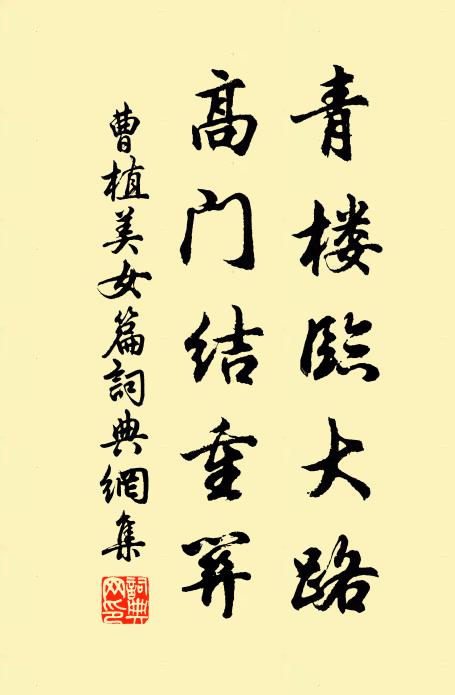 青楼臨大路
髙门结重關
曹植美女篇詞典網集
詞典
网印